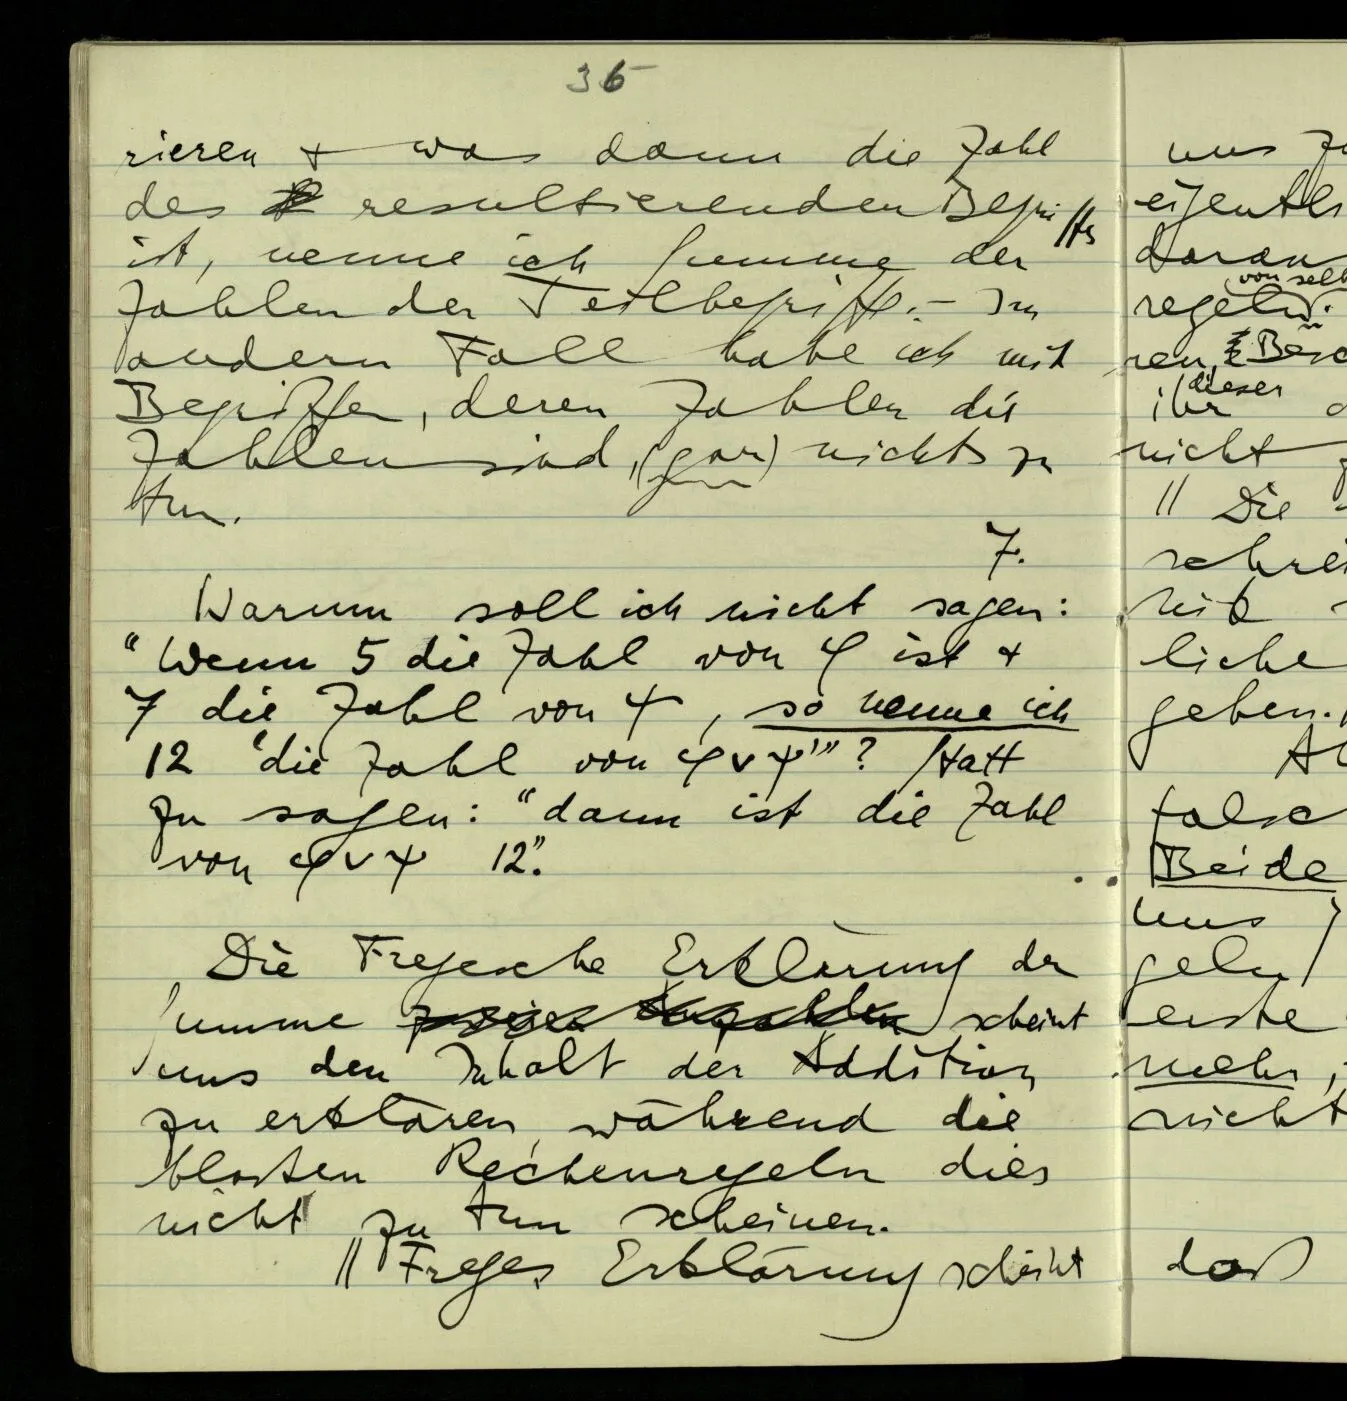 36
rieren + was dann die Zahl
des resultierenden Begriffes
ist, nenne ich Summe der
Zahlen der Teilbegriffe. – Im
andern Fall habe ich mit
Begriffen, deren Zahlen die
Zahlen sind, (gar) nichts zu
tun.
7.
Warum soll ich nicht sagen:
“Wenn 5 die Zahl von φ ist +
7 die Zahl von ψ, so nenne ich
12 ‘die Zahl von φ∨ψ’”? statt
zu sagen: “dann ist die Zahl
von φ∨ψ 12”.
Die Fregesche Erklärung der
Summe zweier Anzahlen scheint
uns den Inhalt der Addition
zu erklären, während die
blossen Rechenregeln dies
nicht zu tun scheinen.
// Freges Erklärung scheint
uns
eigentl
daran
von selb
regeln.
ren,
dieser
ihr
nicht
// Die
schrei
mit
liche
geben.
falsc
Beide
uns
geln
erste
mehr,
nicht
daß